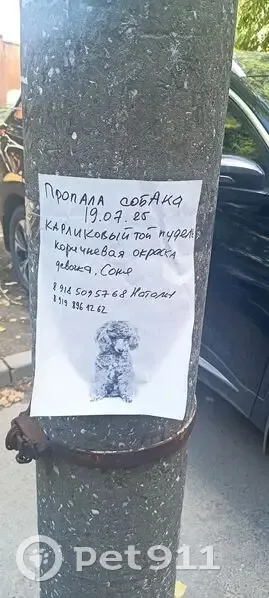 Пропала собака
19.07.25
карликовый той пудель
коричневая окраска
девочка, Соня
8 918 509 57 68 Наталья
8 919 896 12 62
pet911